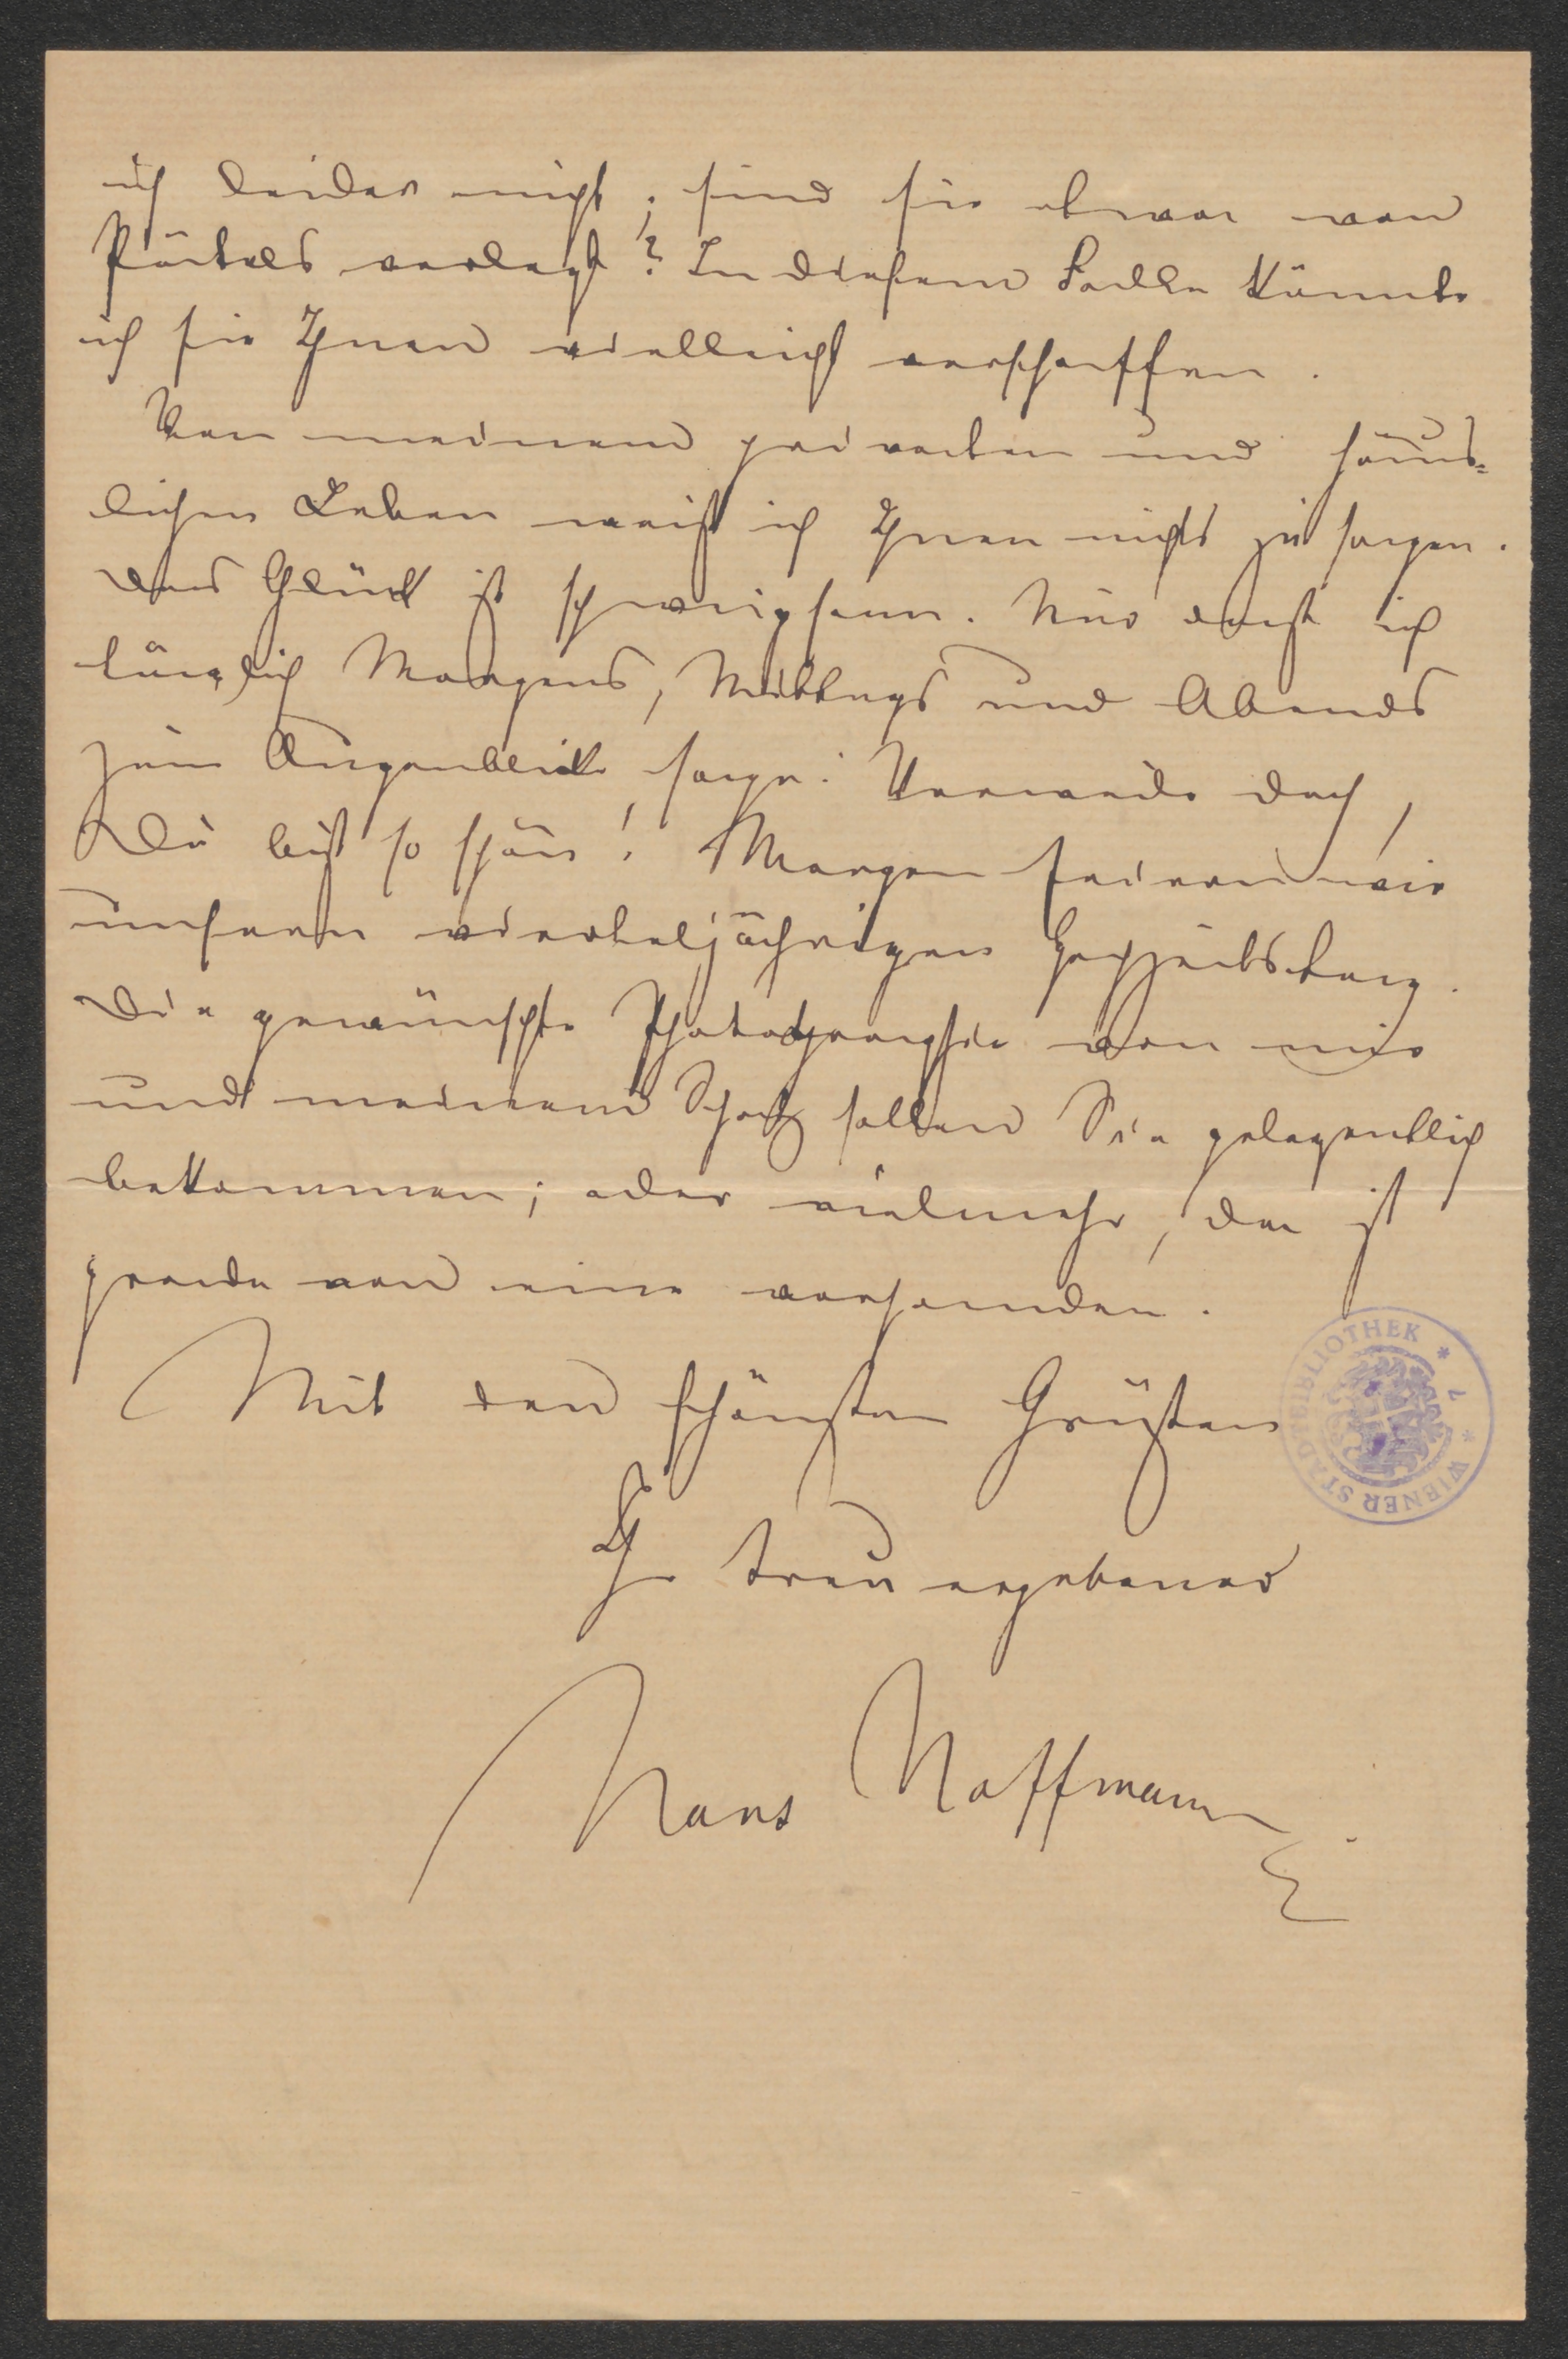 ich leider nicht; sind sie etwa von
Pätels verlegt? In diesem Falle könnte
ich sie Ihnen vielleicht verschaffen.
Von meinem privaten und häus-
lichen Leben weiß ich Ihnen nichts zu sagen.
Das Glück ist schweigsam. Nur daß ich
täglich Morgens, Mittags und Abends
zum Augenblicke sage: Verweile doch,
Du bist so schön! Morgen feiern wir
unsern vierteljährigen Hochzeitstag.
Die gewünschte Photographie von mir
und meinem Schatz sollen Sie gelegentlich
bekommen; oder vielmehr, da ist
grade noch eine vorhanden.
Mit den schönsten Grüßen
Ihr treu ergebener
Hans Hoffmann.
WIENER STADTBIBLIOTHEK